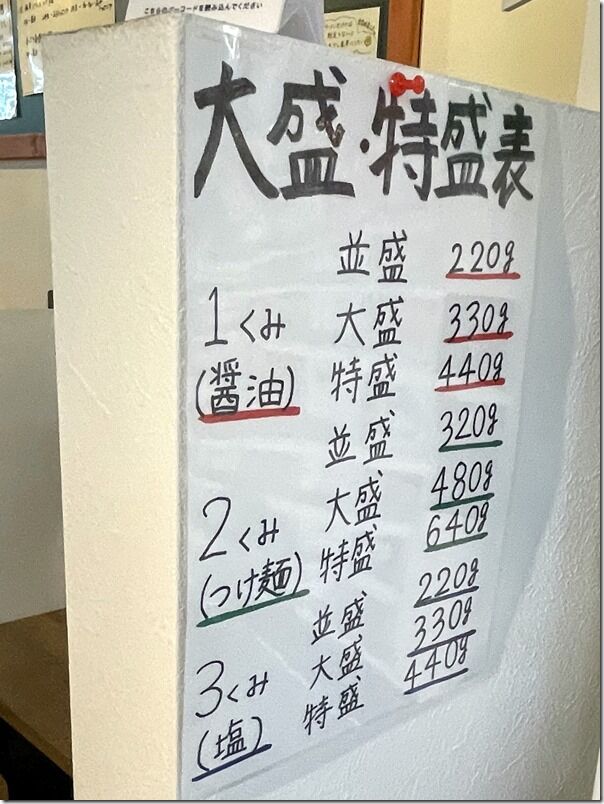 こちらのバーコードを読み込んでください
大盛・特盛表
並盛 220g
1くみ 大盛 330g
(醤油) 特盛 440g
並盛 320g
2くみ 大盛 480g
(つけ麺) 特盛 640g
並盛 220g
3くみ 大盛 330g
(塩) 特盛 440g